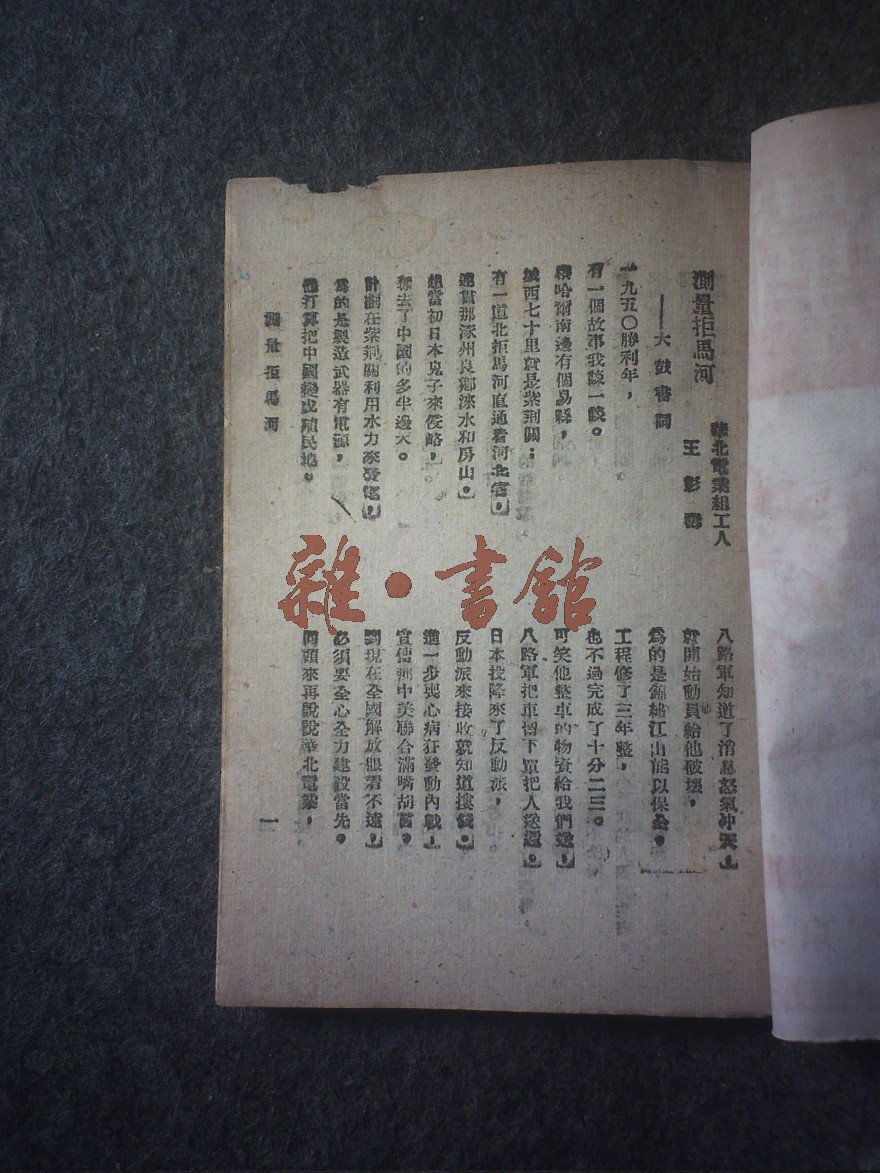 測量拒馬河
——大鼓書詞
華北電業組工人
王彭
一九五〇勝利年，
有一個故事我談一談。
察哈爾南邊有個易縣，
城西七十里就是紫荆關；
有一道北拒馬河直通着河北省，
連貫那涿州良鄉淶水和房山。
想當初日本鬼子來侵略，
奪去了中國的多半邊天。
計劃在紫荆關利用水力來發電，
爲的是製造武器有電源，
他打算把中國變成殖民地。
八路軍知道了消息怒氣冲天，
就開始動員給他破壞，
爲的是錦繡江山能以保全。
工程修了三年整，
也不過完成了十分二三。
可笑他整車的物資給我們送，
八路軍把車留下單把人送還。
日本投降來了反動派，
反動派來接收就知道摟錢。
進一步喪心病狂發動內戰，
宣傳那中美聯合滿嘴胡言。
到現在全國解放眼看不遠，
必須要全心全力建設當先。
回頭來再說說華北電業，
測量拒馬河
一
雜·書館